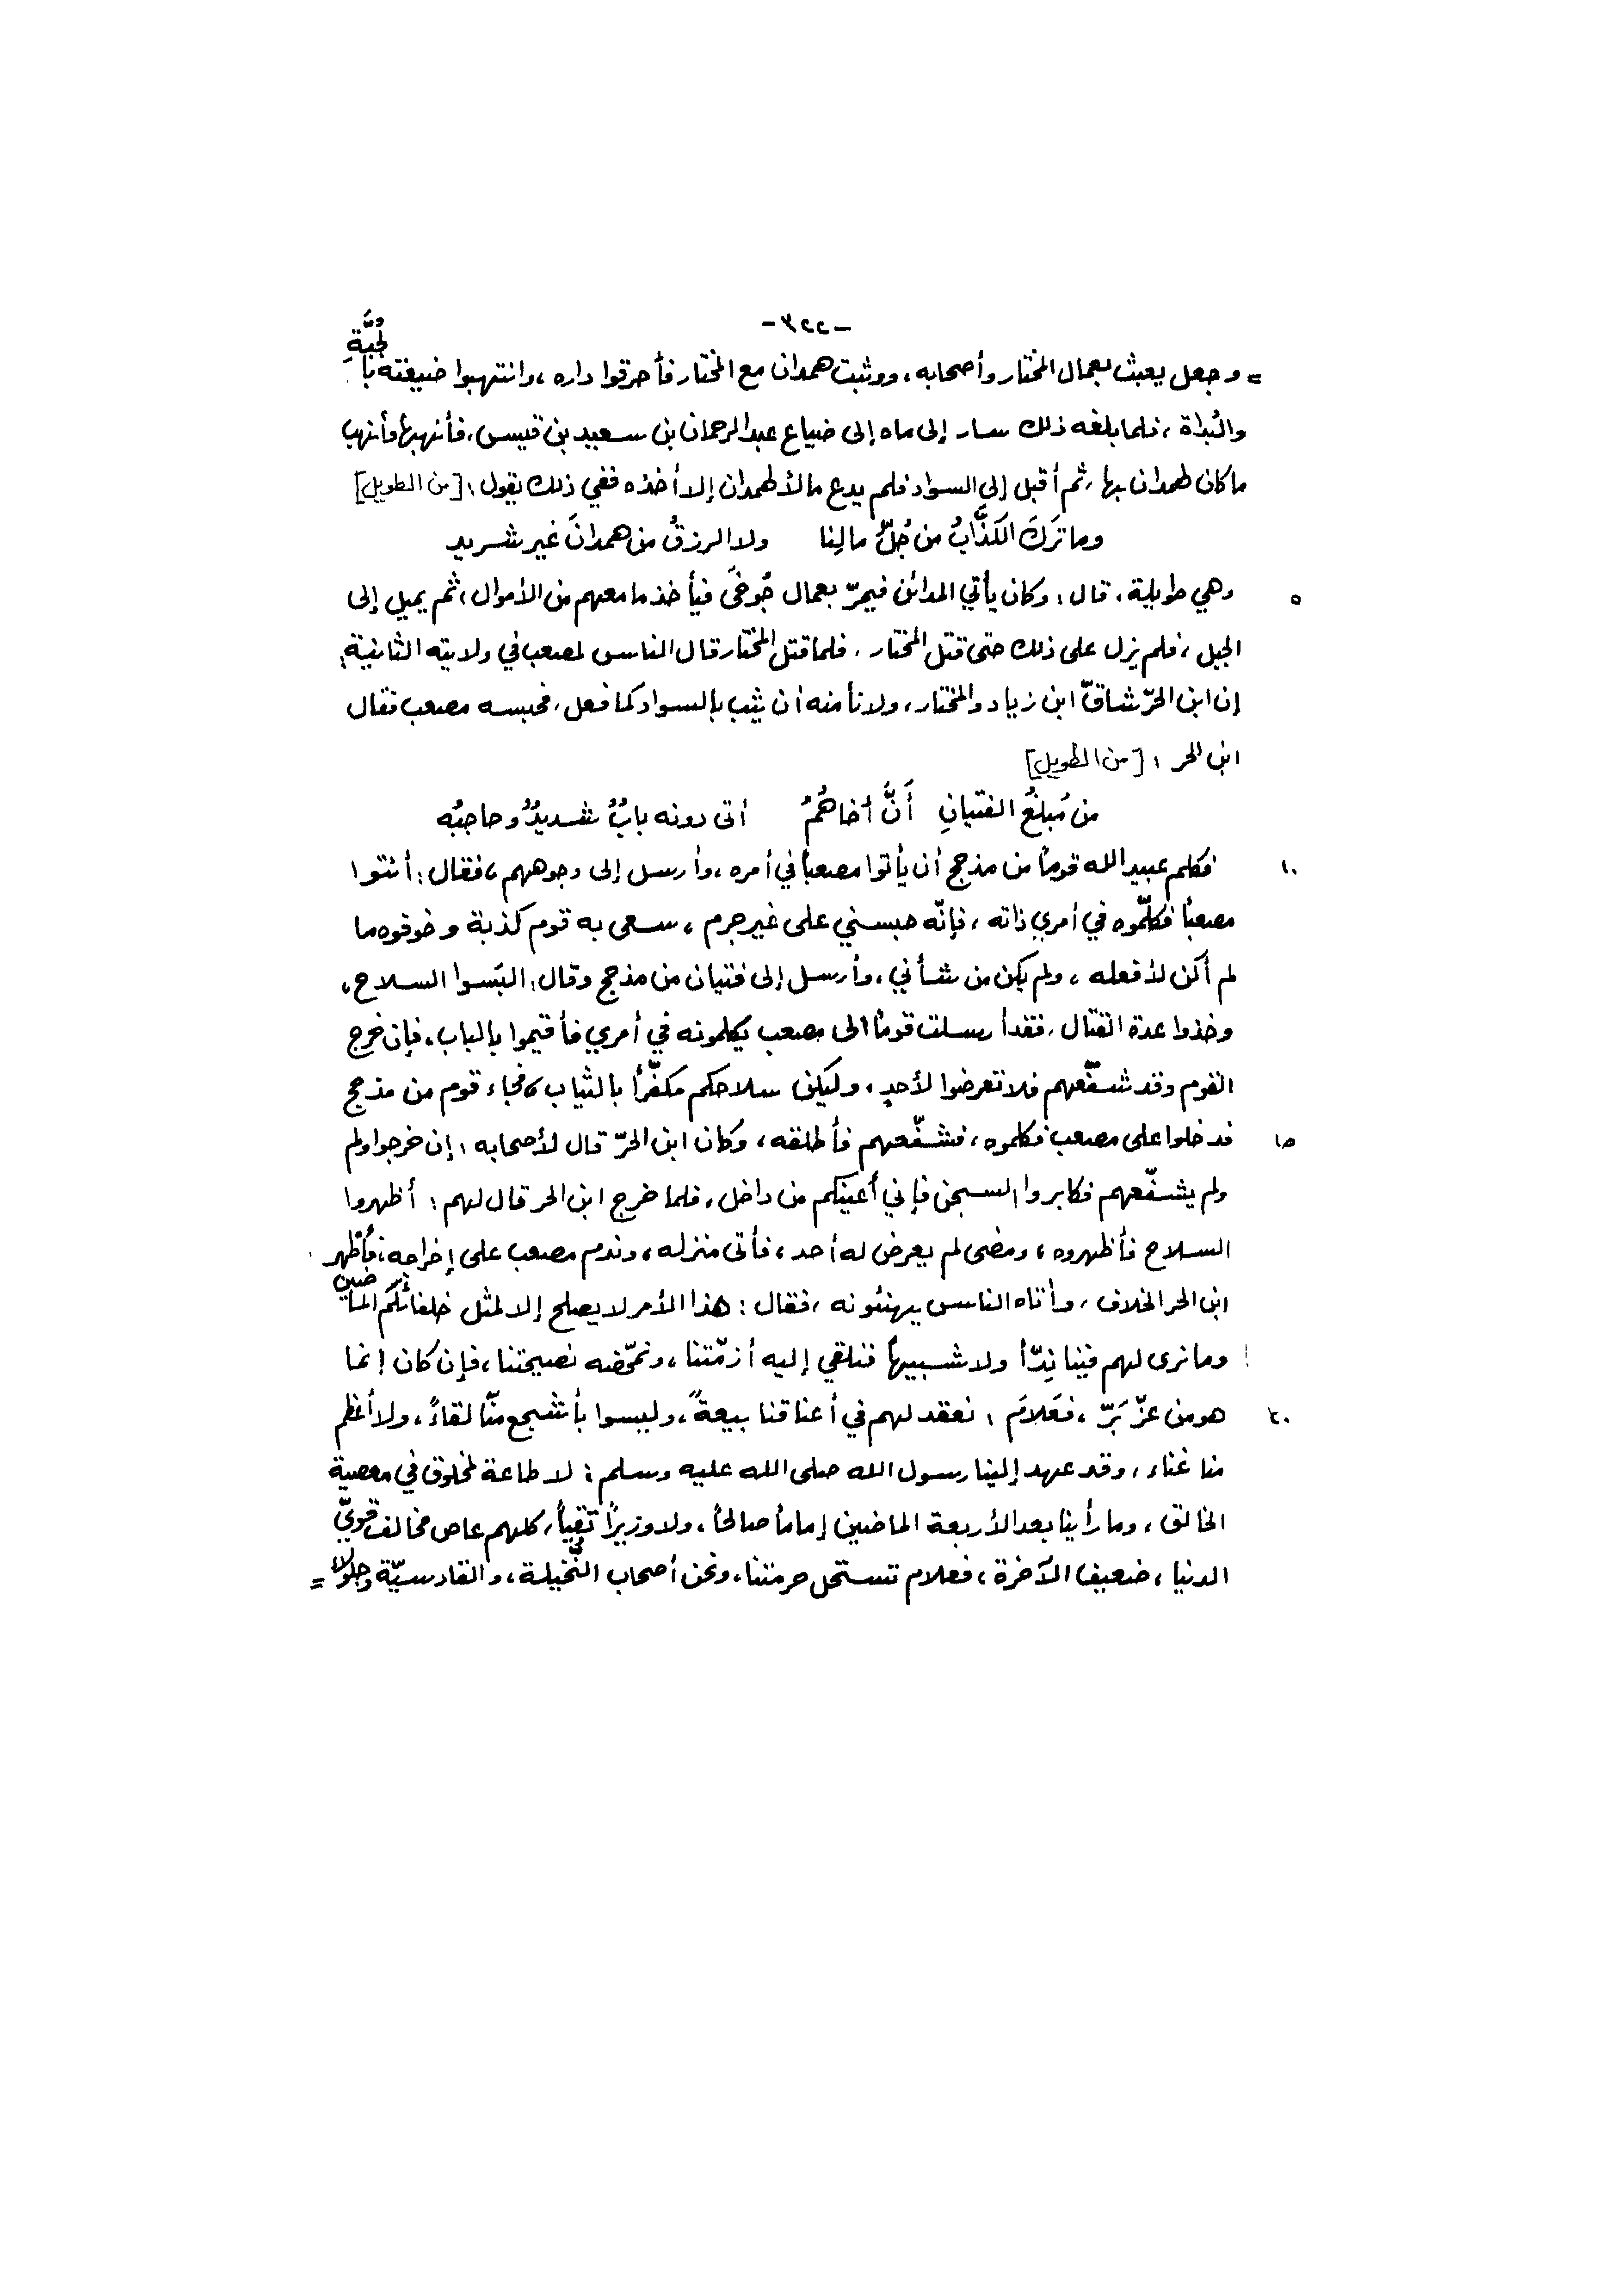 -٣٢٢-
= وجعل يعبث بعمال المختار وأصحابه، ووثبت همدان مع المختار فأحرقوا داره، وانتهبوا ضيعته بالجُبَّةِ
والبُداة، فلما بلغه ذلك سار إلى ماه إلى ضياع عبد الرحمان بن سعيد بن قيس، فأنهبها وأنهب
ما كان لهمدان بها، ثم أقبل إلى السواد فلم يدع مالاً لهمدان إلا أخذه ففي ذلك يقول: [من الطويل]
وما تَرَكَ الكَذَّابُ من جُلِّ مالِنا ولا الرزقُ من همدانَ غير شريدِ
٥ وهي طويلة، قال: وكان يأتي المدائن فيمرّ بعمال جُوخَى فيأخذ ما معهم من الأموال، ثم يميل إلى
الجبل، فلم يزل على ذلك حتى قتل المختار، فلما قتل المختار قال الناس لمصعب في ولايته الثانية:
إن ابن الحرّ شاقّ ابن زياد والمختار، ولا نأمنه أن يثب بالسواد كما فعل، فحبسه مصعب فقال
ابن الحر: [من الطويل]
من مُبلغُ الفتيانِ أَنَّ أخاهُمُ أتى دونه بابٌ شديدٌ وحاجبُه
١٠ فكلم عبيد الله قوماً من مذحج أن يأتوا مصعباً في أمره، وأرسل إلى وجوههم، فقال: أئتوا
مصعباً فكلّموه في أمري ذاته، فإنّه حبسني على غير جرم، سعى به قوم كذبة وخوفوه ما
لم أكن لأفعله، ولم يكن من شأني، وأرسل إلى فتيان من مذحج وقال: البَسوا السلاح،
وخذوا عدة القتال، فقد أرسلت قوماً الى مصعب يكلمونه في أمري فأقيموا بالباب، فإن خرج
القوم وقد شفّعهم فلا تعرضوا لأحدٍ، وليكن سلاحكم مكفّراً بالثياب، فجاء قوم من مذحج
١٥ فدخلوا على مصعب فكلموه، فشفّعهم فأطلقه، وكان ابن الحرّ قال لأصحابه: إن خرجوا ولم
ولم يشفّعهم فكابروا السجن فإني أُعينكم من داخل، فلما خرج ابن الحر قال لهم: أظهروا
السلاح فأظهروه، ومضى لم يعرض له أحد، فأتى منزله، وندم مصعب على إخراجه، فأظهر
ابن الحر الخلاف، وأتاه الناس يهنئونه، فقال: هذا الأمر لا يصلح إلا لمثل خلفائكم الماضين
وما نرى لهم فينا نِدّاً ولا شبيهاً فنلقي إليه أزمّتنا، ونمحّضه نصيحتنا، فإن كان إنما
٢٠ هو من عزّ بَزّ، فعَلامَ: نعقد لهم في أعناقنا بيعةً، وليسوا بأشجع منّا لقاءً، ولا أعظم
منا غناء، وقد عهد إلينا رسول الله صلى الله عليه وسلم: لا طاعة لمخلوق في معصية
الخالق، وما رأينا بعد الأربعة الماضين إماماً صالحاً، ولا وزيراً تقياً، كلهم عاص مخالف قويّ
الدنيا، ضعيف الآخرة، فعلام تستحل حرمتنا، ونحن أصحاب النُّخيلة، والقادسيّة وجلولاء =